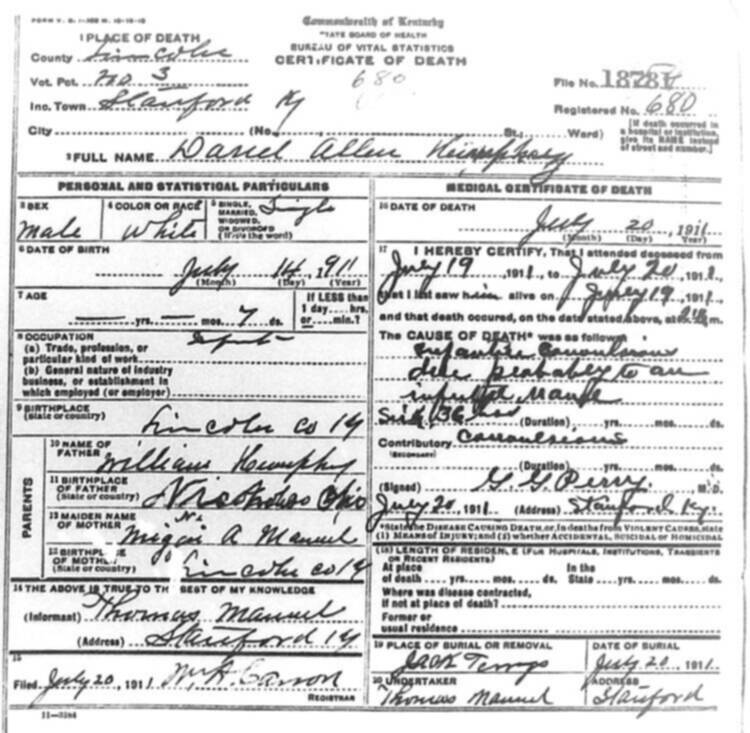 FORM V. S. 1-
Commonwealth of Kentucky
STATE BOARD OF HEALTH
BUREAU OF VITAL STATISTICS
CERTIFICATE OF DEATH
680
1 PLACE OF DEATH
County Lincoln
Vot. Pct. No 3
Inc. Town Stanford Ky
City (No. St., Ward)
File No. 18781
Registered No. 680
[If death occurred in a hospital or institution, give its NAME instead of street and number.]
2 FULL NAME Allen
PERSONAL AND STATISTICAL PARTICULARS
3 SEX Male
4 COLOR OR RACE White
5 SINGLE, MARRIED, WIDOWED, OR DIVORCED (Write the word) Single
6 DATE OF BIRTH
July 14, 1911
(Month) (Day) (Year)
7 AGE
— yrs. — mos. 7 ds.
If LESS than 1 day....hrs. or....min.?
8 OCCUPATION
(a) Trade, profession, or particular kind of work
(b) General nature of industry business, or establishment in which employed (or employer)
9 BIRTHPLACE
(State or country) Lincoln co Ky
PARENTS
10 NAME OF FATHER William
11 BIRTHPLACE OF FATHER
(State or country) Ohio
12 MAIDEN NAME OF MOTHER A Manuel
13 BIRTHPLACE OF MOTHER
(State or country) Lincoln co Ky
14 THE ABOVE IS TRUE TO THE BEST OF MY KNOWLEDGE
(Informant) Thomas Manuel
(Address) Stanford Ky
15
Filed July 20, 1911 Carson
REGISTRAR
11—3184
MEDICAL CERTIFICATE OF DEATH
16 DATE OF DEATH
July 20, 1911
(Month) (Day) (Year)
17 I HEREBY CERTIFY, That I attended deceased from
July 19 1911, to July 20 1911,
that I last saw him alive on July 19, 1911
and that death occured, on the date stated above, at m.
The CAUSE OF DEATH* was as follows:
Infantile Convulsions
due probably to an
(Duration) yrs. mos. ds.
Contributory Convulsions
(SECONDARY)
(Duration) yrs. mos. ds.
(Signed) G. G. Perry. M. D.
July 20 1911 (Address) Stanford Ky.
*State the DISEASE CAUSING DEATH, or, in deaths from VIOLENT CAUSES, state
(1) MEANS OF INJURY; and (2) whether ACCIDENTAL, SUICIDAL or HOMICIDAL
(18) LENGTH OF RESIDENCE (FOR HOSPITALS, INSTITUTIONS, TRANSIENTS OR RECENT RESIDENTS)
At place of death yrs. mos. ds. In the State yrs. mos. ds.
Where was disease contracted,
If not at place of death?
Former or
usual residence
19 PLACE OF BURIAL OR REMOVAL
Jack
DATE OF BURIAL
July 20, 1911
20 UNDERTAKER
Thomas Manuel
ADDRESS
Stanford